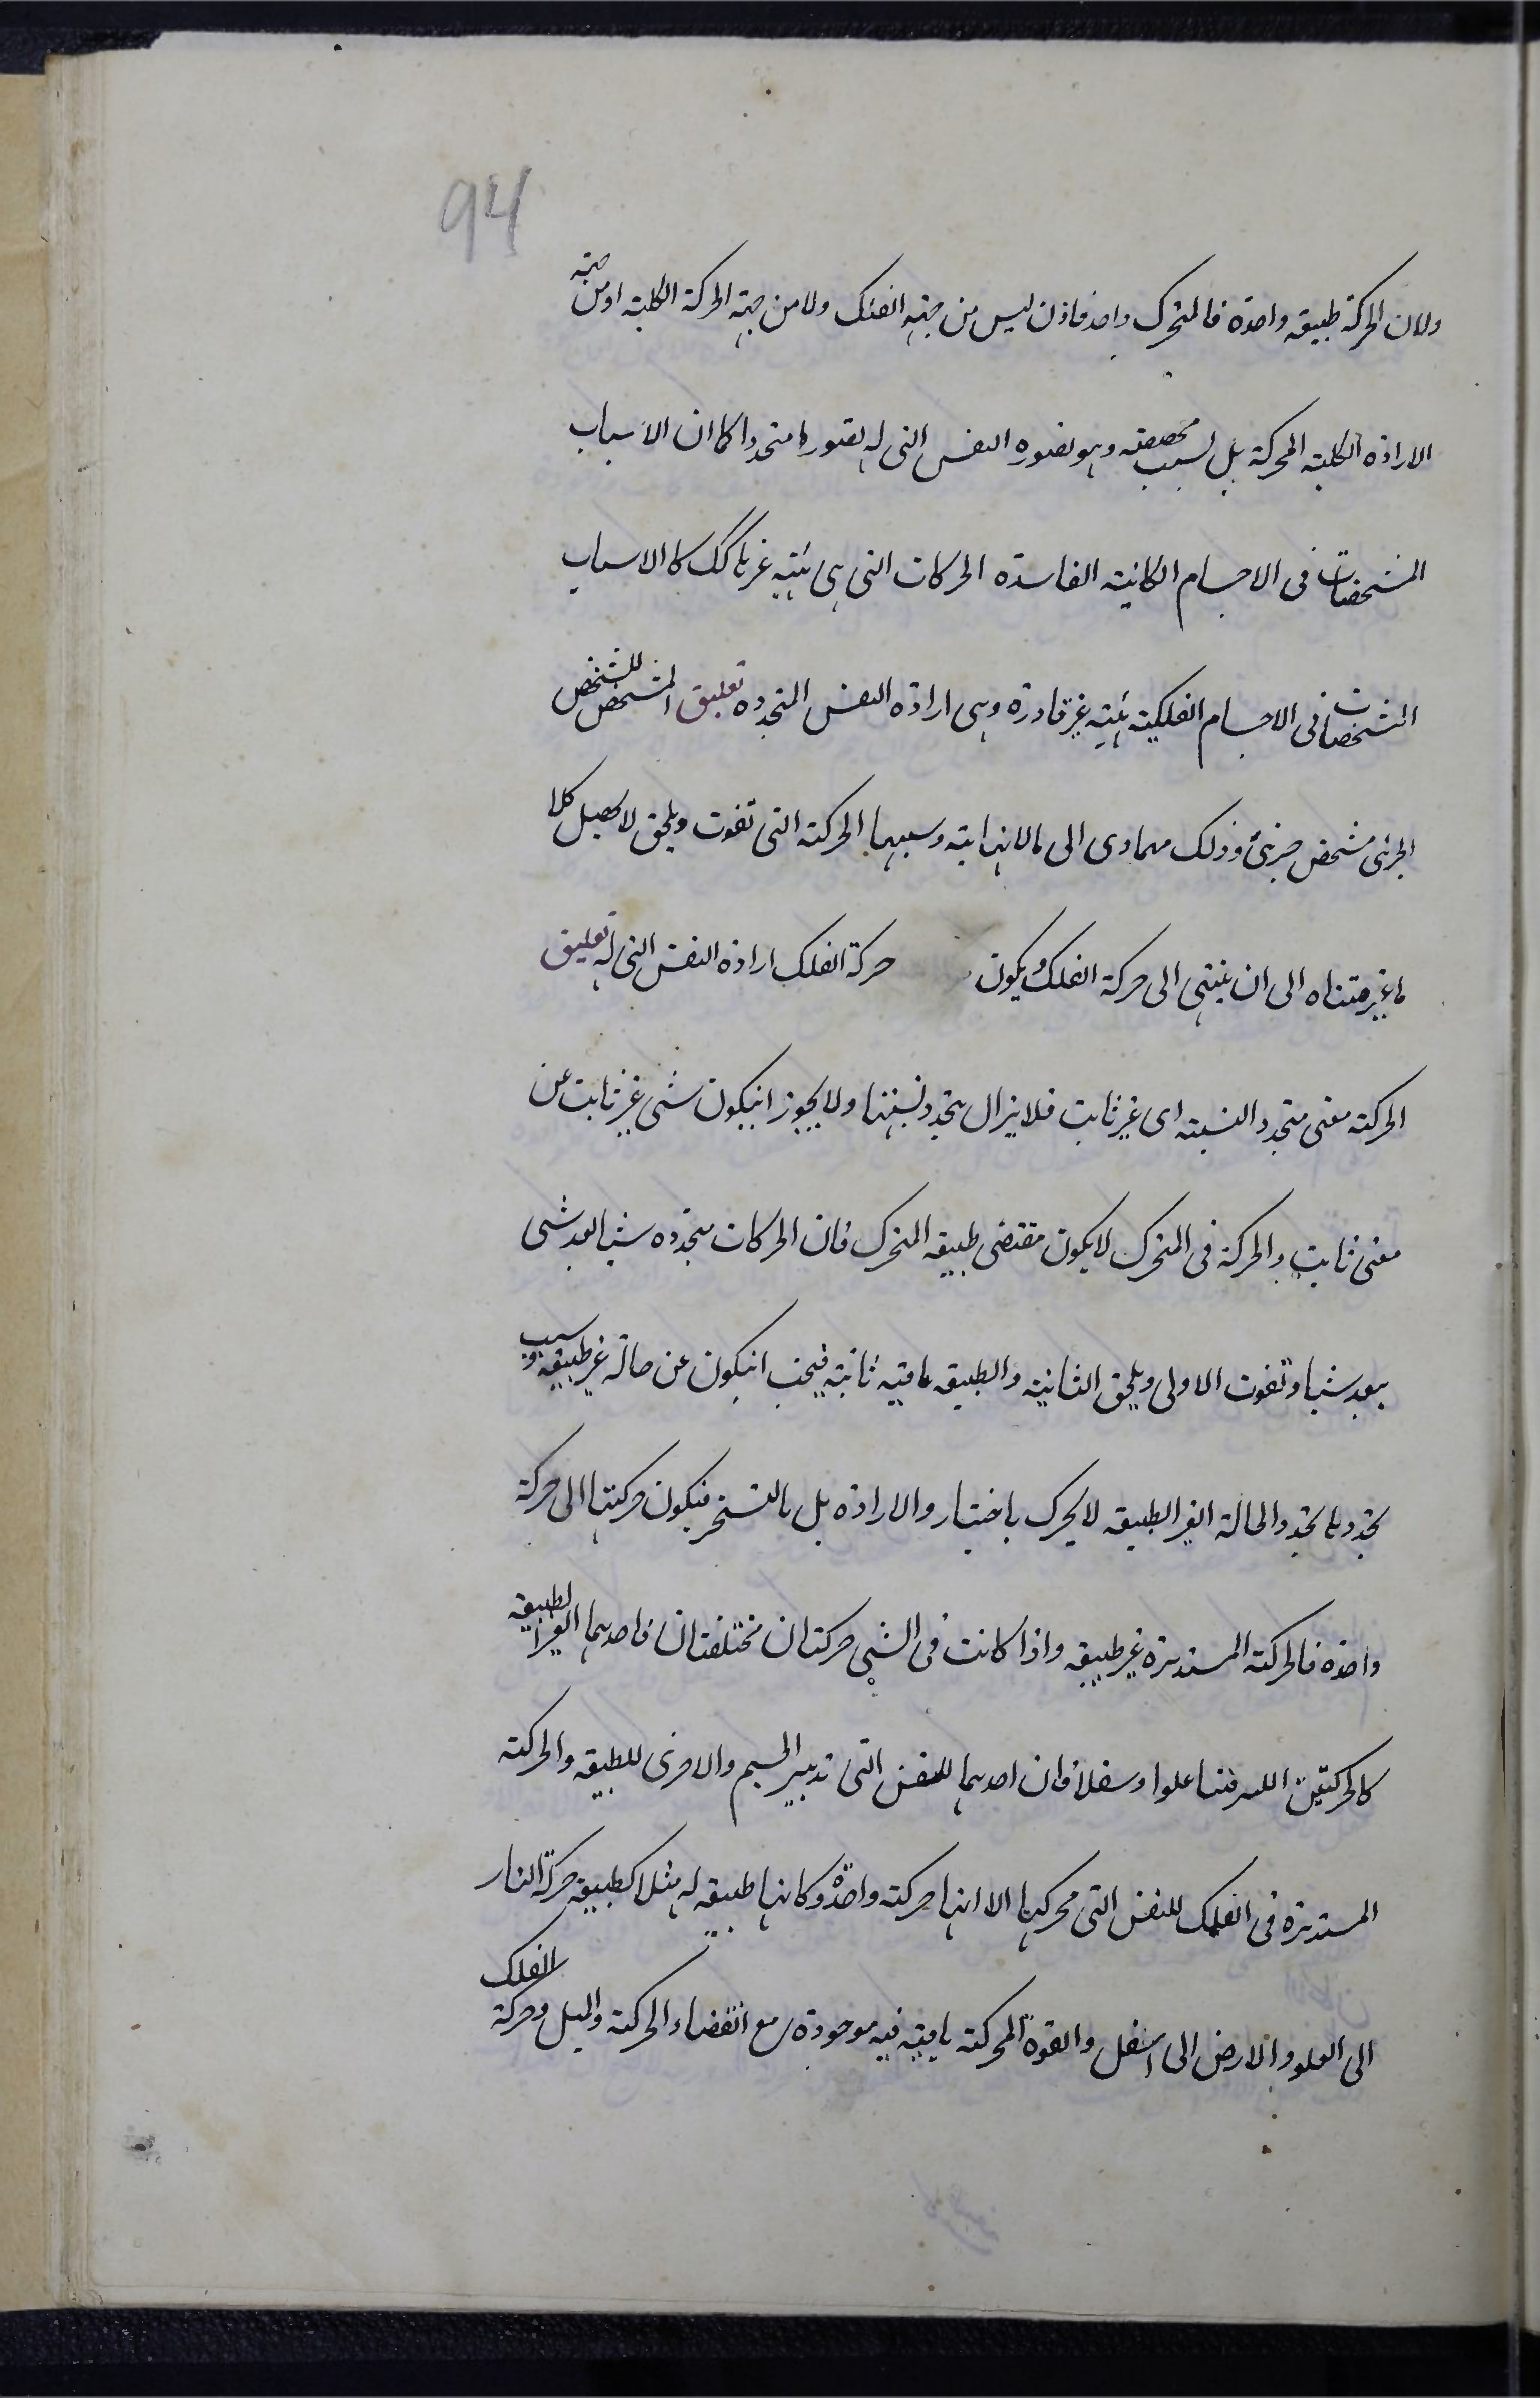 94
ولان الحركة طبيعة واحدة فالمتحرك واحد فاذن ليس من جهة الفلك ولا من جهة الحركة الكلية او من جهة
الارادة الكلية المحركة بل لسبب مخصصه وهو تصوره النفس التى له تصورا متجددا كما ان الاسباب
المشخصات فى الاجسام الكائنة الفاسدة الحركات التى هى غير كذلك الاسباب
المشخصات فى الاجسام الفلكية غير قادرة وهى ارادة النفس المتجددة تعليق المشخص للشخص
الجزئى مشخص جزئى وذلك الى مالانهاية وسببها الحركة التى تفوت ويلحق لا كلا
ما غير متناه الى ان ينتهى الى حركة الفلك ويكون حركة الفلك ارادة النفس التى له تعليق
الحركة معنى متجدد النسبة اى غير ثابت فلا يزال يتجدد نسبتها ولا يجوز انيكون شى غير ثابت عن
معنى ثابت والحركة فى المتحرك لا يكون مقتضى طبيعة المتحرك فان الحركات متجدده شيا بعد شى
بعد شيا وتفوت الاولى ويلحق الثانية والطبيعة باقية ثابتة فيجب انيكون عن حالة غير طبيعة وسبب
تجددها تجدد الحالة الغير الطبيعة لا يحرك باختيار والارادة بل بالتسخير فيكون حركتها الى حركة
واحدة فالحركة المستديرة غير طبيعة واذا كانت فى الشى حركتان مختلفتان فاحدهما الغير الطبيعة
كالحركتين علوا وسفلا فان احدهما للنفس التى تدبير الجسم والاخرى للطبيعة والحركة
المستديرة فى الفلك للنفس التى محركها الا انها حركة واحدة وكانها طبيعة له مثلا كطبيعة حركة النار
الى العلو والارض الى اسفل والقوة المحركة باقية فيه موجودة مع انقضاء الحركة والميل وحركة الفلك